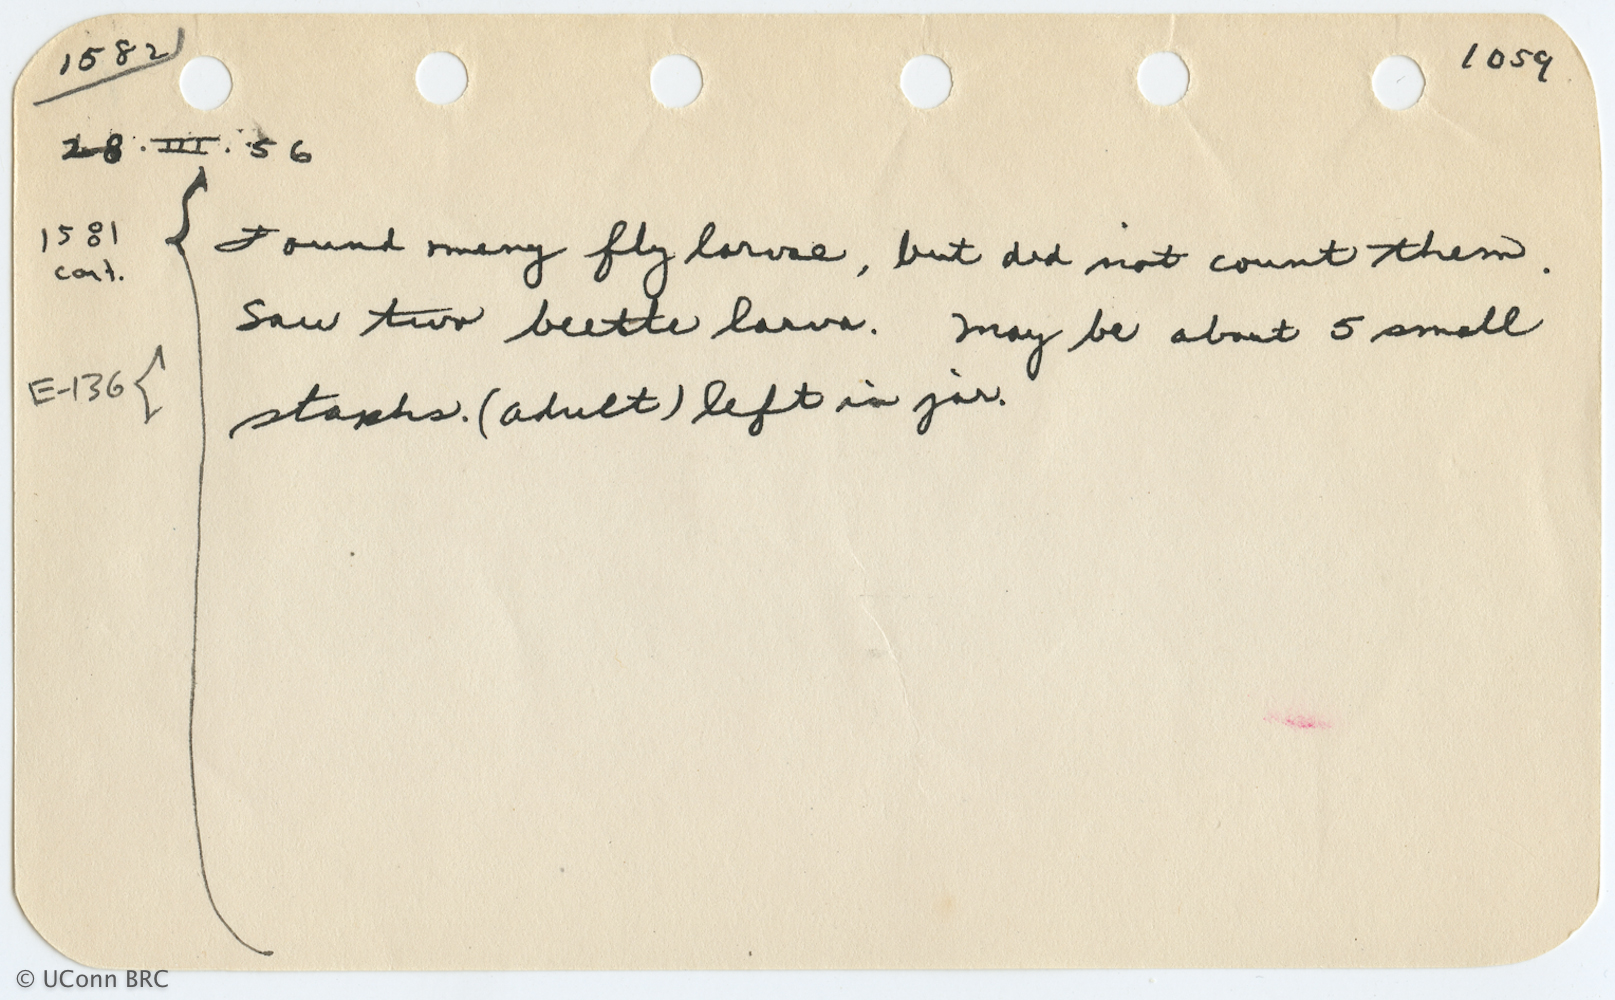 1582
1059
28.III.56
1581
cont.
Found many fly larvae, but did not count them.
Saw two beetle larva. May be about 5 small
E-136
staphs. (adult) left in jar.
© UConn BRC